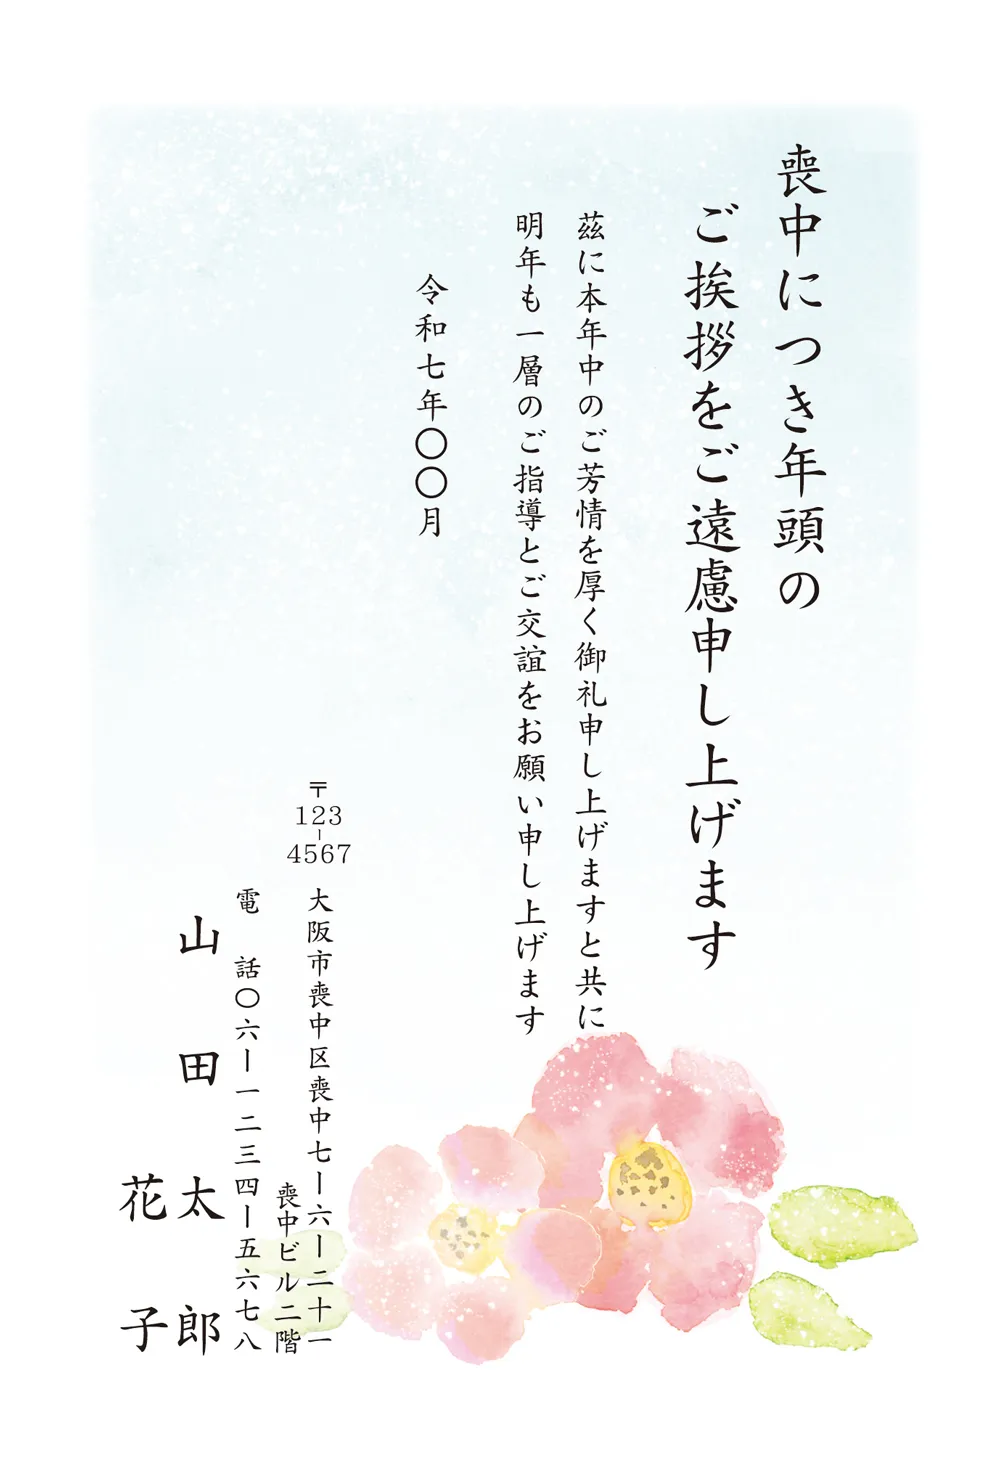 喪中につき年頭の
ご挨拶をご遠慮申し上げます
茲に本年中のご芳情を厚く御礼申し上げますと共に
明年も一層のご指導とご交誼をお願い申し上げます
令和七年〇〇月
〒123-4567
大阪市喪中区喪中七ー六ー二十一
喪中ビル二階
電　話〇六ー一二三四ー五六七八
山田太郎
花子